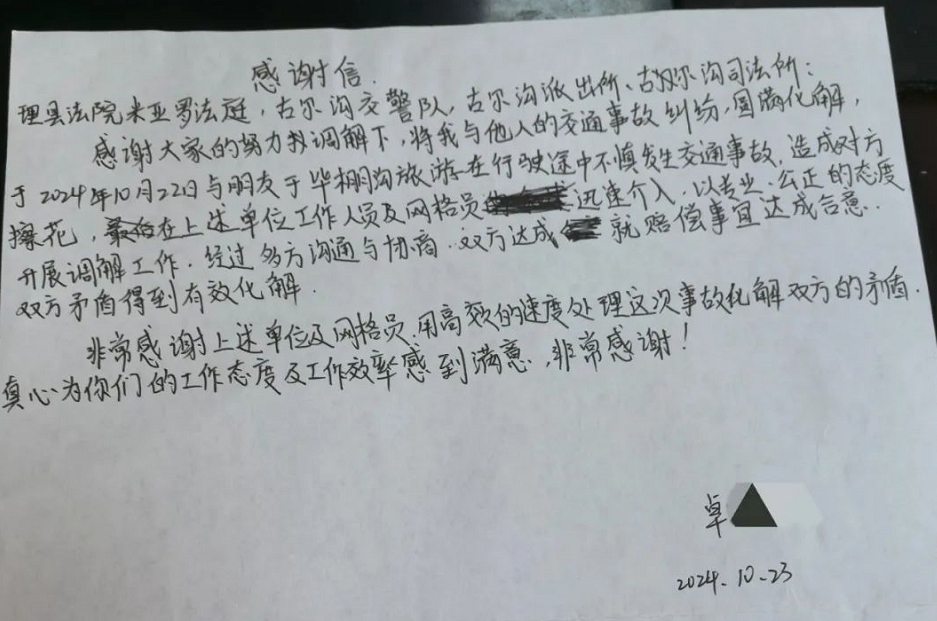 感谢信.
理县法院米亚罗法庭,古尔沟交警队,古尔沟派出所、古尔沟司法所:
感谢大家的努力和调解下,将我与他人的交通事故纠纷,圆满化解,
于2024年10月22日与朋友于毕棚沟旅游在行驶途中不慎发生交通事故.造成对方
擦花,在上述单位工作人员及网格员迅速介入.以专业、公正的态度
开展调解工作.经过多方沟通与协商.双方达成就赔偿事宜达成合意.
双方矛盾得到有效化解.
非常感谢上述单位及网格员.用高效的速度处理这次事故化解双方的矛盾.
真心为你们的工作态度及工作效率感到满意,非常感谢!
卓
2024.10.23